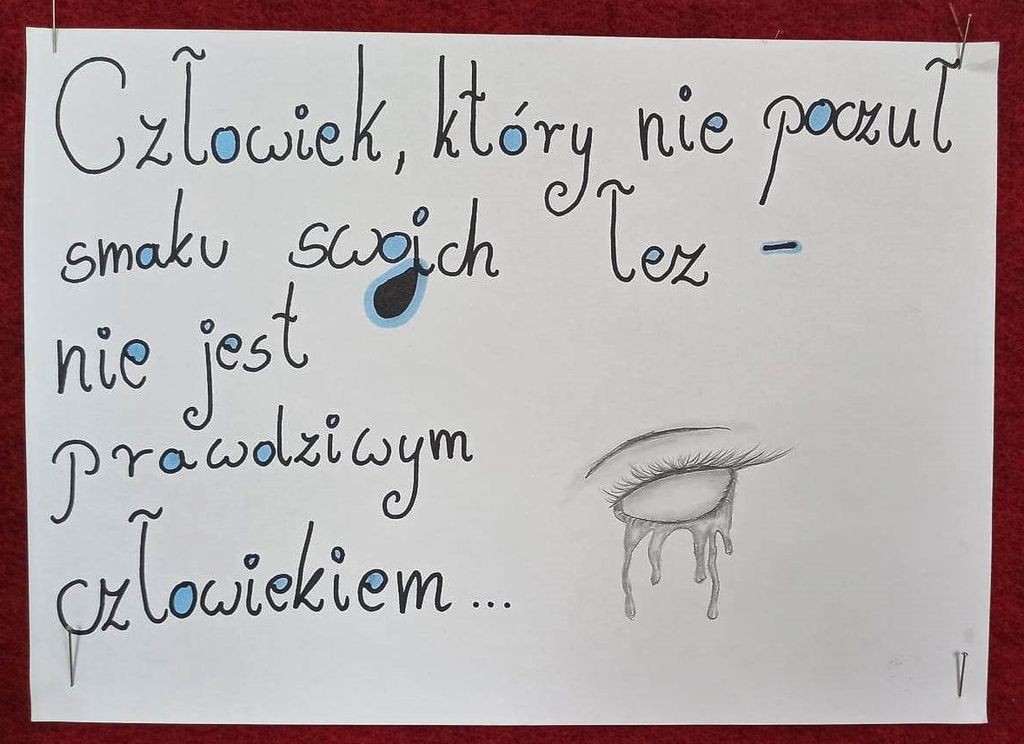 Człowiek, który nie poczuł
smaku swoich łez -
nie jest
prawdziwym
człowiekiem...